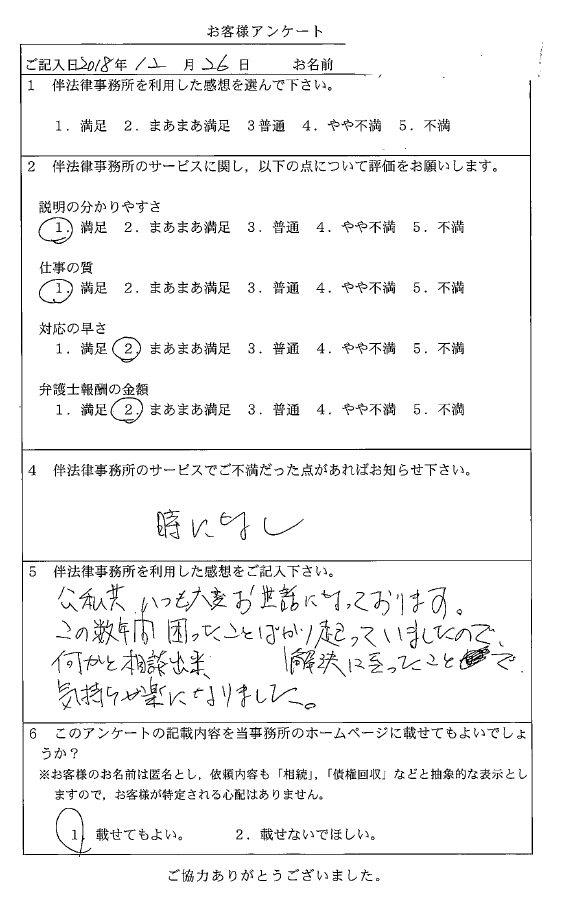 お客様アンケート
ご記入日2018年 12 月 26 日 お名前
1 伴法律事務所を利用した感想を選んで下さい。
1．満足 2．まあまあ満足 3普通 4．やや不満 5．不満
2 伴法律事務所のサービスに関し，以下の点について評価をお願いします。
説明の分かりやすさ
1．満足 2．まあまあ満足 3．普通 4．やや不満 5．不満
仕事の質
1．満足 2．まあまあ満足 3．普通 4．やや不満 5．不満
対応の早さ
1．満足 2．まあまあ満足 3．普通 4．やや不満 5．不満
弁護士報酬の金額
1．満足 2．まあまあ満足 3．普通 4．やや不満 5．不満
4 伴法律事務所のサービスでご不満だった点があればお知らせ下さい。
時になし
5 伴法律事務所を利用した感想をご記入下さい。
公私共、いつも大変お世話になっております。
この数年間 困ったことばかり起っていましたので、
何かと相談出来 解決に至ったことで、
気持ちが楽になりました。
6 このアンケートの記載内容を当事務所のホームページに載せてもよいでしょ
うか？
※お客様のお名前は匿名とし，依頼内容も「相続」，「債権回収」などと抽象的な表示とし
ますので，お客様が特定される心配はありません。
1．載せてもよい。 2．載せないでほしい。
ご協力ありがとうございました。